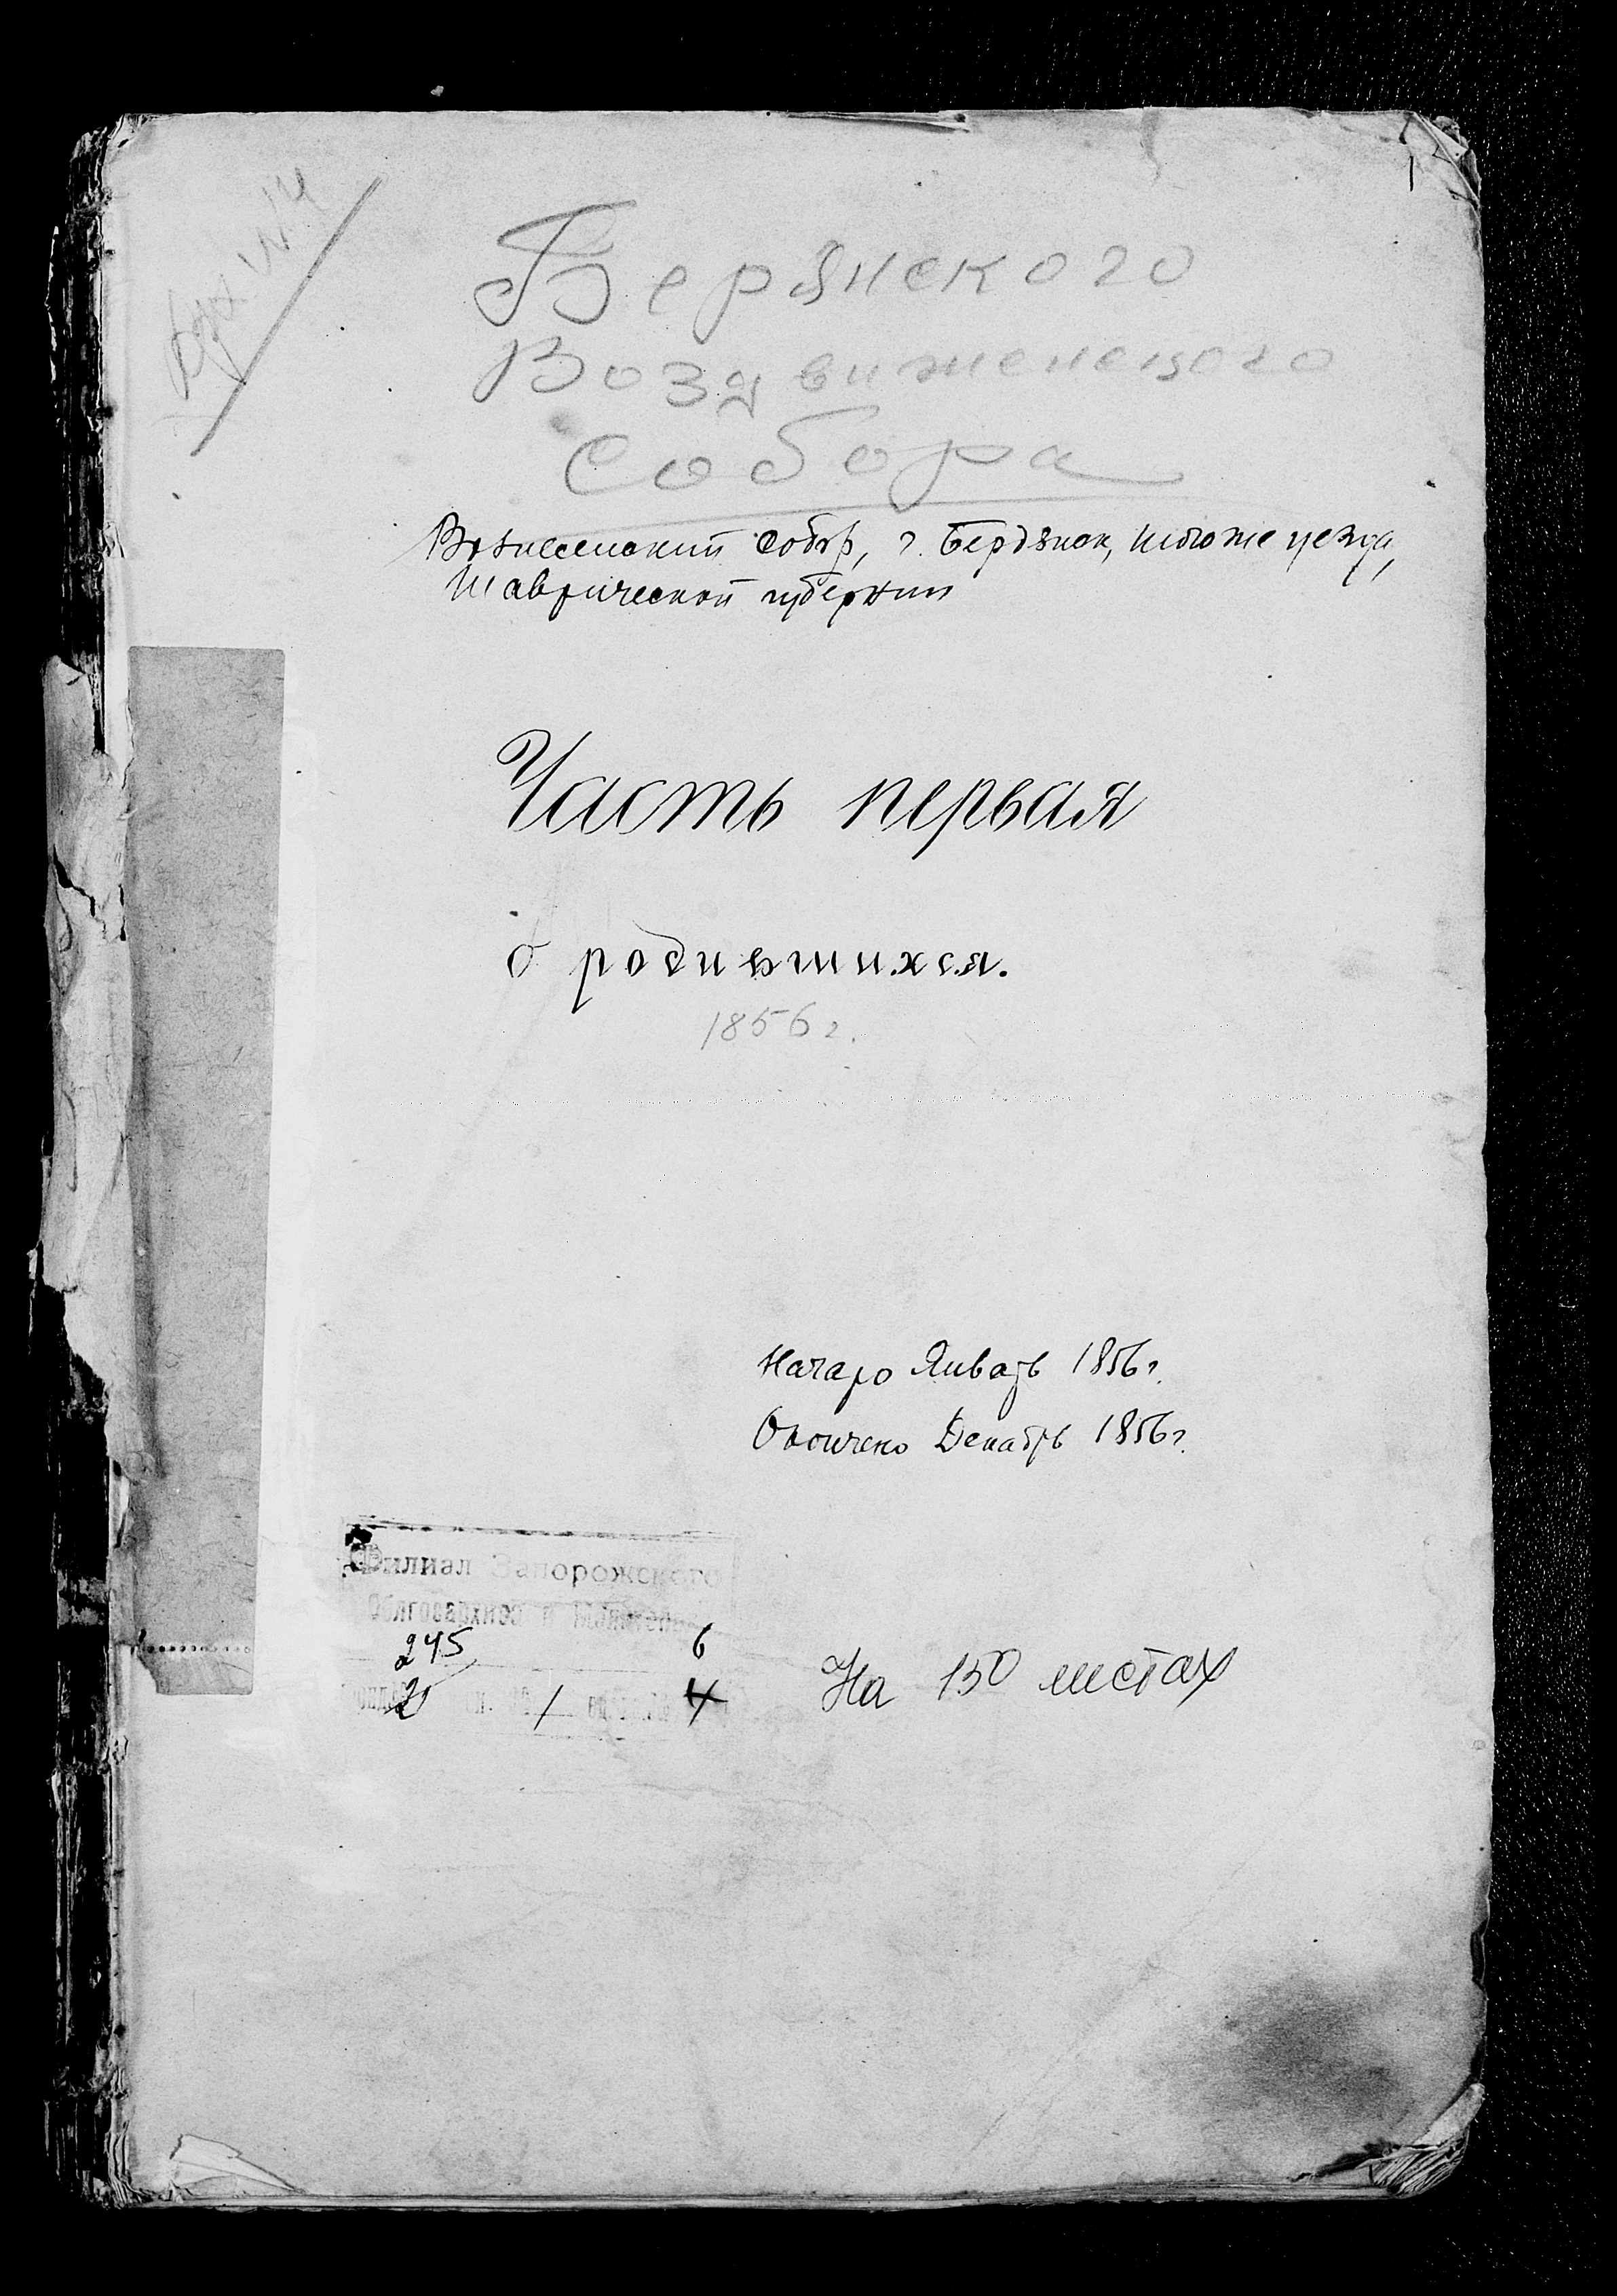 1
Арх №4
Берянского
Воздвиженского
Собора
Вознесенский собор, г. Бердянск, того же уезда,
Таврической губернии
Часть первая
о родившихся.
1856 г.
Начало Январь 1856 г.
Окончено Декабрь 1856 г.
Филиал Запорожского
Облгосархива в
245 6
На 150 листах
20 / 4